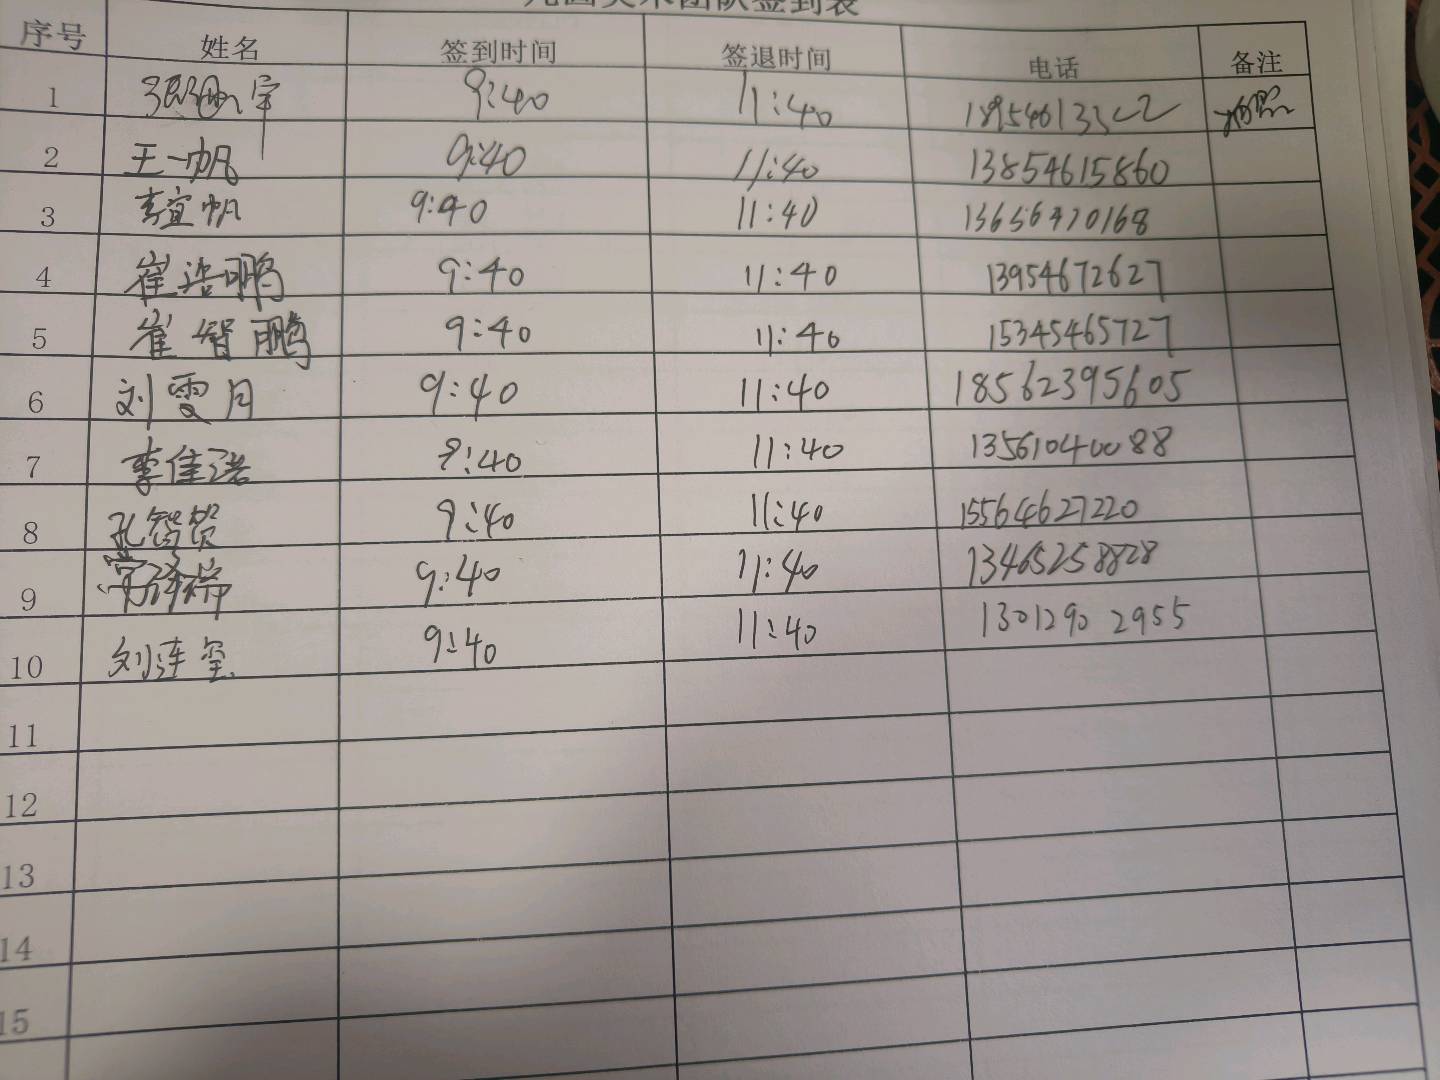 美术团队签到表
序号 姓名 签到时间 签退时间 电话 备注
1 9:40 11:40 拍照
2 王一帆 9:40 11:40 13854615860
3 李宜帆 9:40 11:40 13656470168
4 崔浩鹏 9:40 11:40 13954672627
5 崔智鹏 9:40 11:40 15345465727
6 刘雯月 9:40 11:40 18562395605
7 李佳诺 9:40 11:40 13561040088
8 9:40 11:40 15564627220
9 9:40 11:40 13465258828
10 刘连玺 9:40 11:40 13012902955
11
12
13
14
15